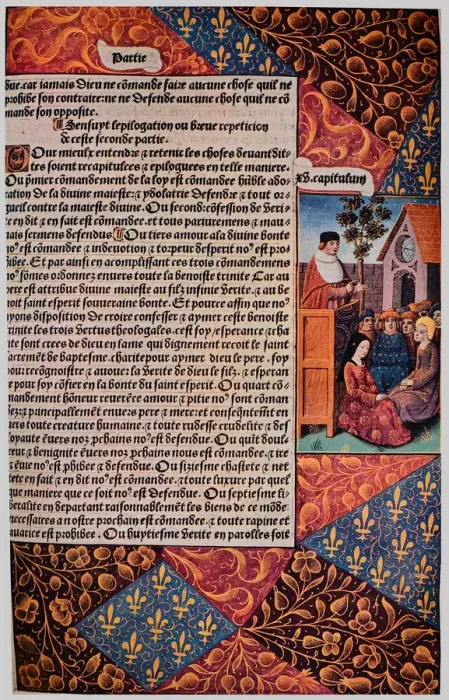 Partie
due.car iamais Dieu ne cōmande faire aucune chose quil ne
prohibe son contraire:ne ne Defende aucune chose quil ne cō
mande son opposite.
¶Sensuyt lepilogation ou breue repeticion
de ceste seconde partie.
POur mieulx entendre ⁊ retenir les choses deuant dit-
tes soient recapitulees ⁊ epiloguees en telle maniere.
Ou pmier cōmandement de la loy est cōmandee huble ado-
ration de la diuine maieste: ⁊ ydolatrie Defendue ⁊ tout or-
gueil contre la maieste diuine. Ou second: cōfession de Veri-
te en dit ⁊ en fait est cōmandee. et tous pariuremens ⁊ mau-
uais sermens defendus ¶Ou tiers amour a la diune bonte
noꝰ est cōmandee ⁊ indeuotion ⁊ torpeur desperit noꝰ est pro-
hibee. Et par ainsi en acomplissant ces trois cōmandemens
noꝰ sōmes ordonnez enuers toute la benoiste trinite Car au
pere est attribue diuine maieste au filz infinie Verite. ⁊ au be
noit saint esperit souueraine bonte. Et pource affin que noꝰ
ayons disposition de croire confesser ⁊ aymer ceste benoiste
trinite les trois Vertus theologales. cest foy/esperance ⁊ cha
rite sont crees de dieu en lame qui dignement recoit le saint
sacremēt de baptesme. charite pour aymer dieu le pere . foy
pour recongnoistre ⁊ auouer la Verite de dieu le filz. ⁊ esperan
ce pour soy cōfier en la bonte du saint esperit. Ou quart cō-
mandement hōneur reuerēce amour ⁊ pitie noꝰ sont cōman
dez: ⁊ principallemēt enuers pere ⁊ mere: et consequāmēt en
uers toute creature humaine. ⁊ toute rudesse crudelite ⁊ des
loyaute ēuers noz pchains noꝰ est defendue. Ou quit doul-
ceur ⁊ benignite ēuers noz pchains nous est cōmandee. ⁊ ire
⁊ ēuie noꝰ est phibee ⁊ defendue. Ou siziesme chastete ⁊ net
tete en fait ⁊ en dit noꝰ est cōmandee. ⁊ toute luxure par quel
que maniere que ce soit noꝰ est Defendue. Ou septiesme li-
beralite en departant raisonnablemēt les biens de ce mōde
necessaires a nostre prochain est cōmandee. ⁊ toute rapine et
auarice est prohibee . Ou huytiesme Verite en parolles soit
xv. capitulum